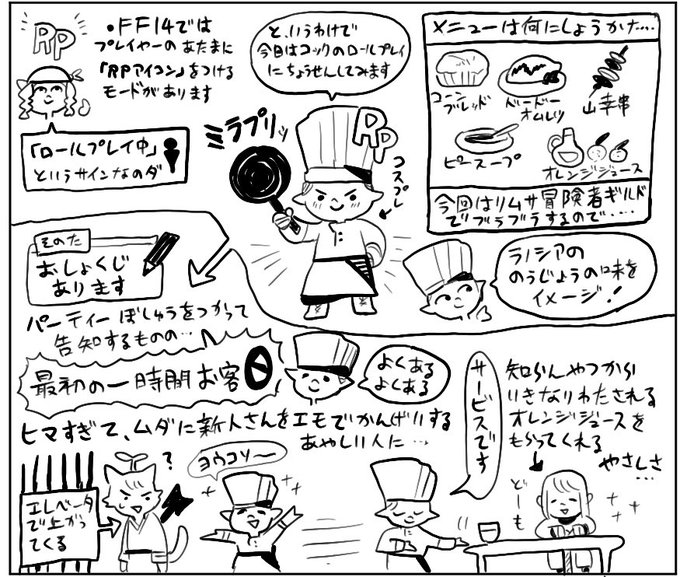 RP
・FF14では
プレイヤーのあたまに
「RPアイコン」をつける
モードがあります
「ロールプレイ中」
というサインなのダ
と、いうわけで
今日はコックのロールプレイ
にちょうせんしてみます
ミラプリッ
RP
コスプレ
メニューは何にしようかナ…
コーン
ブレッド
ドードー
オムレツ
山幸串
ピースープ
オレンジジュース
今回はリムサ冒険者ギルド
でブラブラするので…
ラノシアの
のうじょうの味を
イメージ!
そのた
おしょくじ
あります
パーティーぼしゅうをつかって
告知するものの…
最初の一時間お客0
よくある
よくある
ヒマすぎて、ムダに新人さんをエモでかんげいする
あやしい人に…
エレベータ
で上がっ
てくる
?
ヨウコソ〜
サービスです
知らんやつから
いきなりわたされる
オレンジジュースを
もらってくれる
やさしさ
…
どーも